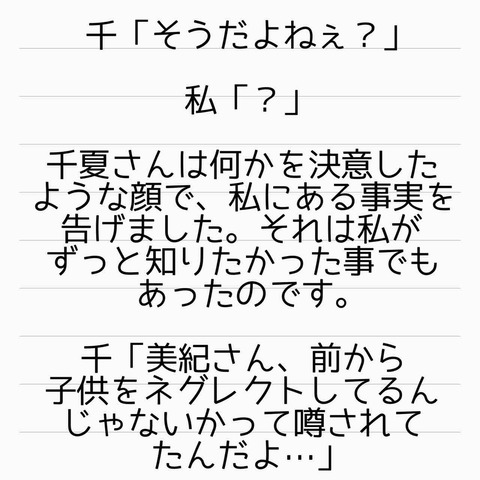 千「そうだよねぇ？」
私「？」
千夏さんは何かを決意した
ような顔で、私にある事実を
告げました。それは私が
ずっと知りたかった事でも
あったのです。
千「美紀さん、前から
子供をネグレクトしてるん
じゃないかって噂されて
たんだよ…」